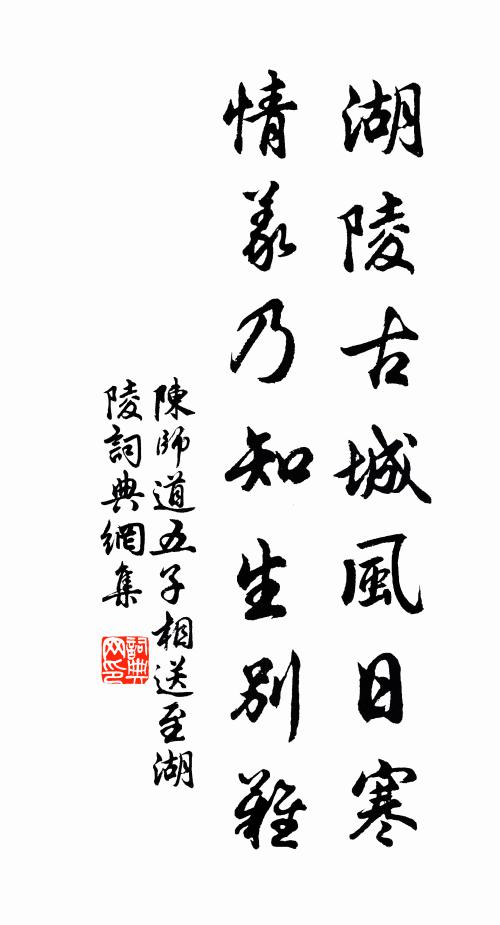 湖陵古城風日寒
情義乃知生別難
陳師道五子相送至湖
陵詞典網集
詞典
网印